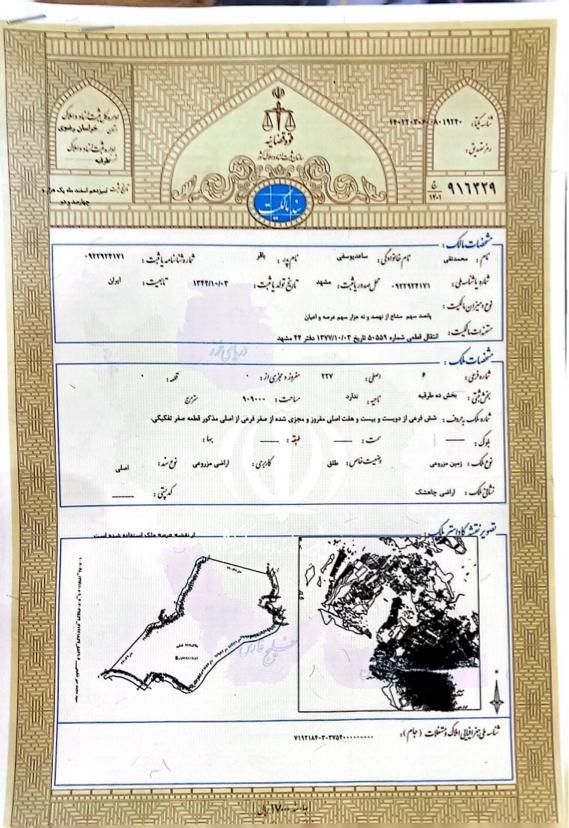 قوه قضائیه
سازمان ثبت اسناد و املاک کشور
سند مالکیت
اداره کل ثبت اسناد و املاک
استان خراسان رضوی
اداره ثبت اسناد و املاک
طرقبه
تاریخ ثبت: سیزدهم اسفند ماه یک هزار و
چهارصد و دو
شناسه یکتا: ۱۴۰۲۲۰۳۰۶۰۰۸۰۱۹۲۴۰
رمز تصدیق:
۹۱۶۳۲۹
۱۴۰۱
مشخصات مالک:
نام: محمدتقی نام خانوادگی: ساعدیوسفی نام پدر: باقر شماره شناسنامه یا ثبت: ۰۹۲۲۹۲۴۱۷۱
شماره یا شناسه ملی: ۰۹۲۲۹۲۴۱۷۱ محل صدور یا ثبت: مشهد تاریخ تولد یا ثبت: ۱۳۴۲/۱۰/۰۳ تابعیت: ایران
نوع و میزان مالکیت: پانصد سهم مشاع از نهصد و نه هزار سهم عرصه و اعیان
مستندات مالکیت: انتقال قطعی شماره ۵۰۵۵۹ تاریخ ۱۳۷۷/۱۰/۰۳ دفتر ۴۴ مشهد
مشخصات ملک:
شماره فرعی: ۶ اصلی: ۲۲۷ مفروز و مجزی از: ۰ قطعه: ۰
بخش ثبتی: بخش ده طرقبه ناحیه: ندارد مساحت: ۹۰۹۰۰۰ مترمربع
شماره ملک به حروف: شش فرعی از دویست و بیست و هفت اصلی مفروز و مجزی شده از صفر فرعی از اصلی مذکور قطعه صفر تفکیکی.
بلوک: سمت: طبقه: بها:
نوع ملک: زمین مزروعی وضعیت خاص: طلق کاربری: اراضی مزروعی نوع سند: اصلی
نشانی ملک: اراضی چاهشک کد پستی:
تصویر نقشه کاداستر ملک:
از نقشه عرصه ملک استفاده شده است
شناسه ملی جغرافیایی املاک و مستغلات (جام): ۷۱۹۲۱۸۴۰۳۰۳۷۵۲۰۰۰۰۰۰۰۰۰